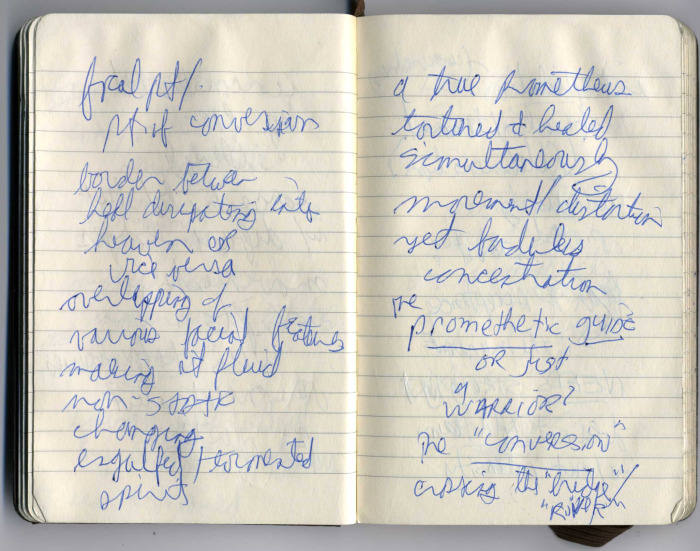 focal pt/.
pt of conversion
border between
hell dissipating into
heaven or
vice versa
overlapping of
various facial features
making it fluid
non-static
changing
engulfed/tormented
spirits
a true Prometheus
tortured & healed
simultaneously
movement/distortion
yet
concentration
the
promethetic guide
OR just
a
WARRIOR?
the "conversion"
crossing the "bridge"/
"River"